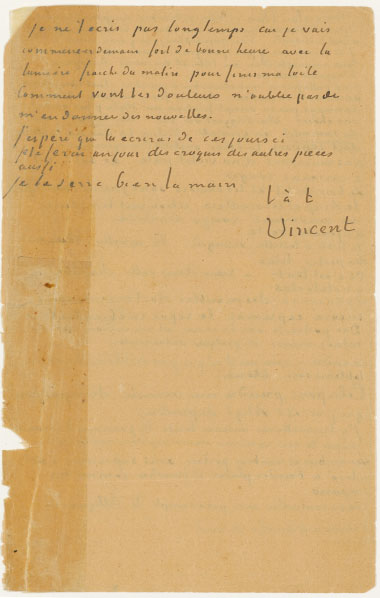 je ne t'ecris pas longtemps car je vais
commencer demain fort de bonne heure avec la
lumière fraiche du matin pour finir ma toile
Comment vont les douleurs n'oublie pas de
m'en donner des nouvelles.
J'espère que tu ecriras de ces jours ci
je te ferai un jour des croquis des autres pieces
aussi
je te serre bien la main
t à t
Vincent